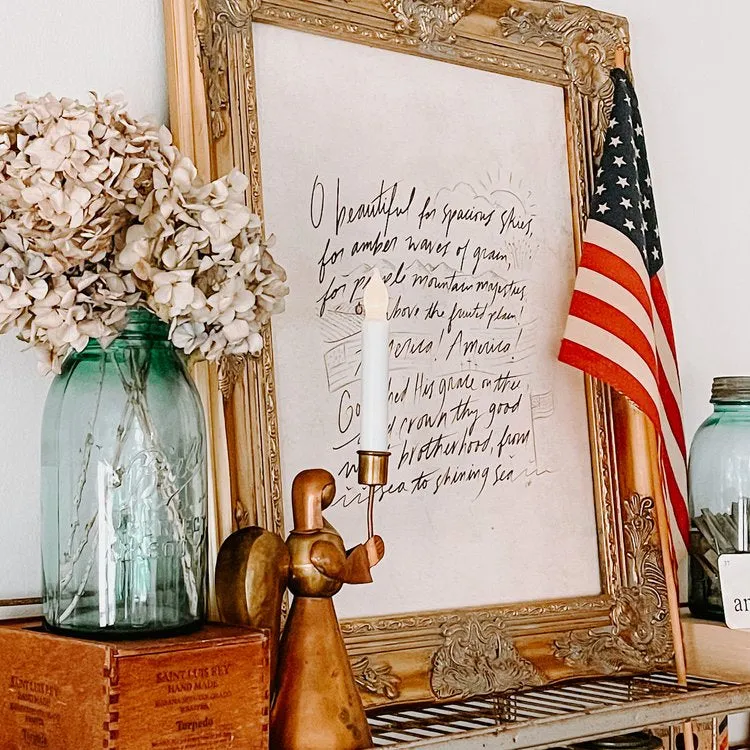 O beautiful for spacious skies,
for amber waves of grain,
for purple mountain majesties,
above the fruited plain!
America! America!
God shed His grace on thee
and crown thy good
brotherhood, from
sea to shining sea
SAINT LUIS REY
HAND MADE
Torpedo